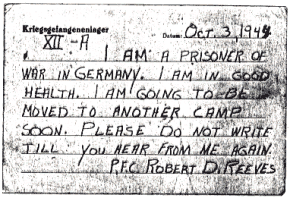 Kriegsgefangenenlager Datum: Oct. 3, 1944
XII-A
I AM A PRISONER OF
WAR IN GERMANY. I AM IN GOOD
HEALTH. I AM GOING TO BE
MOVED TO ANOTHER CAMP
SOON. PLEASE DO NOT WRITE
TILL YOU HEAR FROM ME AGAIN.
P.F.C. ROBERT D. REEVES